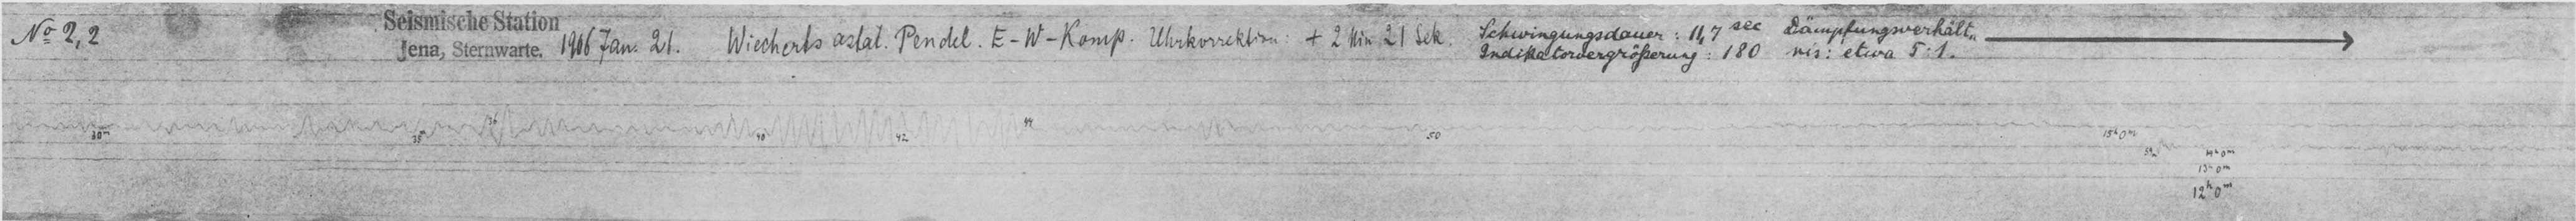 No 2,2
Seismische Station
Jena, Sternwarte.
1906 Jan. 21. Wiecherts astat. Pendel. E-W-Komp. Uhrkorrektion: + 2 Min 21 Sek.
Schwingungsdauer: 11,7 sec Dämpfungsverhält„
Indikatorvergrößerung: 180 nis: etwa 5:1.
30m 35m 36 40 42 44 50 15h0m
59m 14h0m
13h0m
12h0m